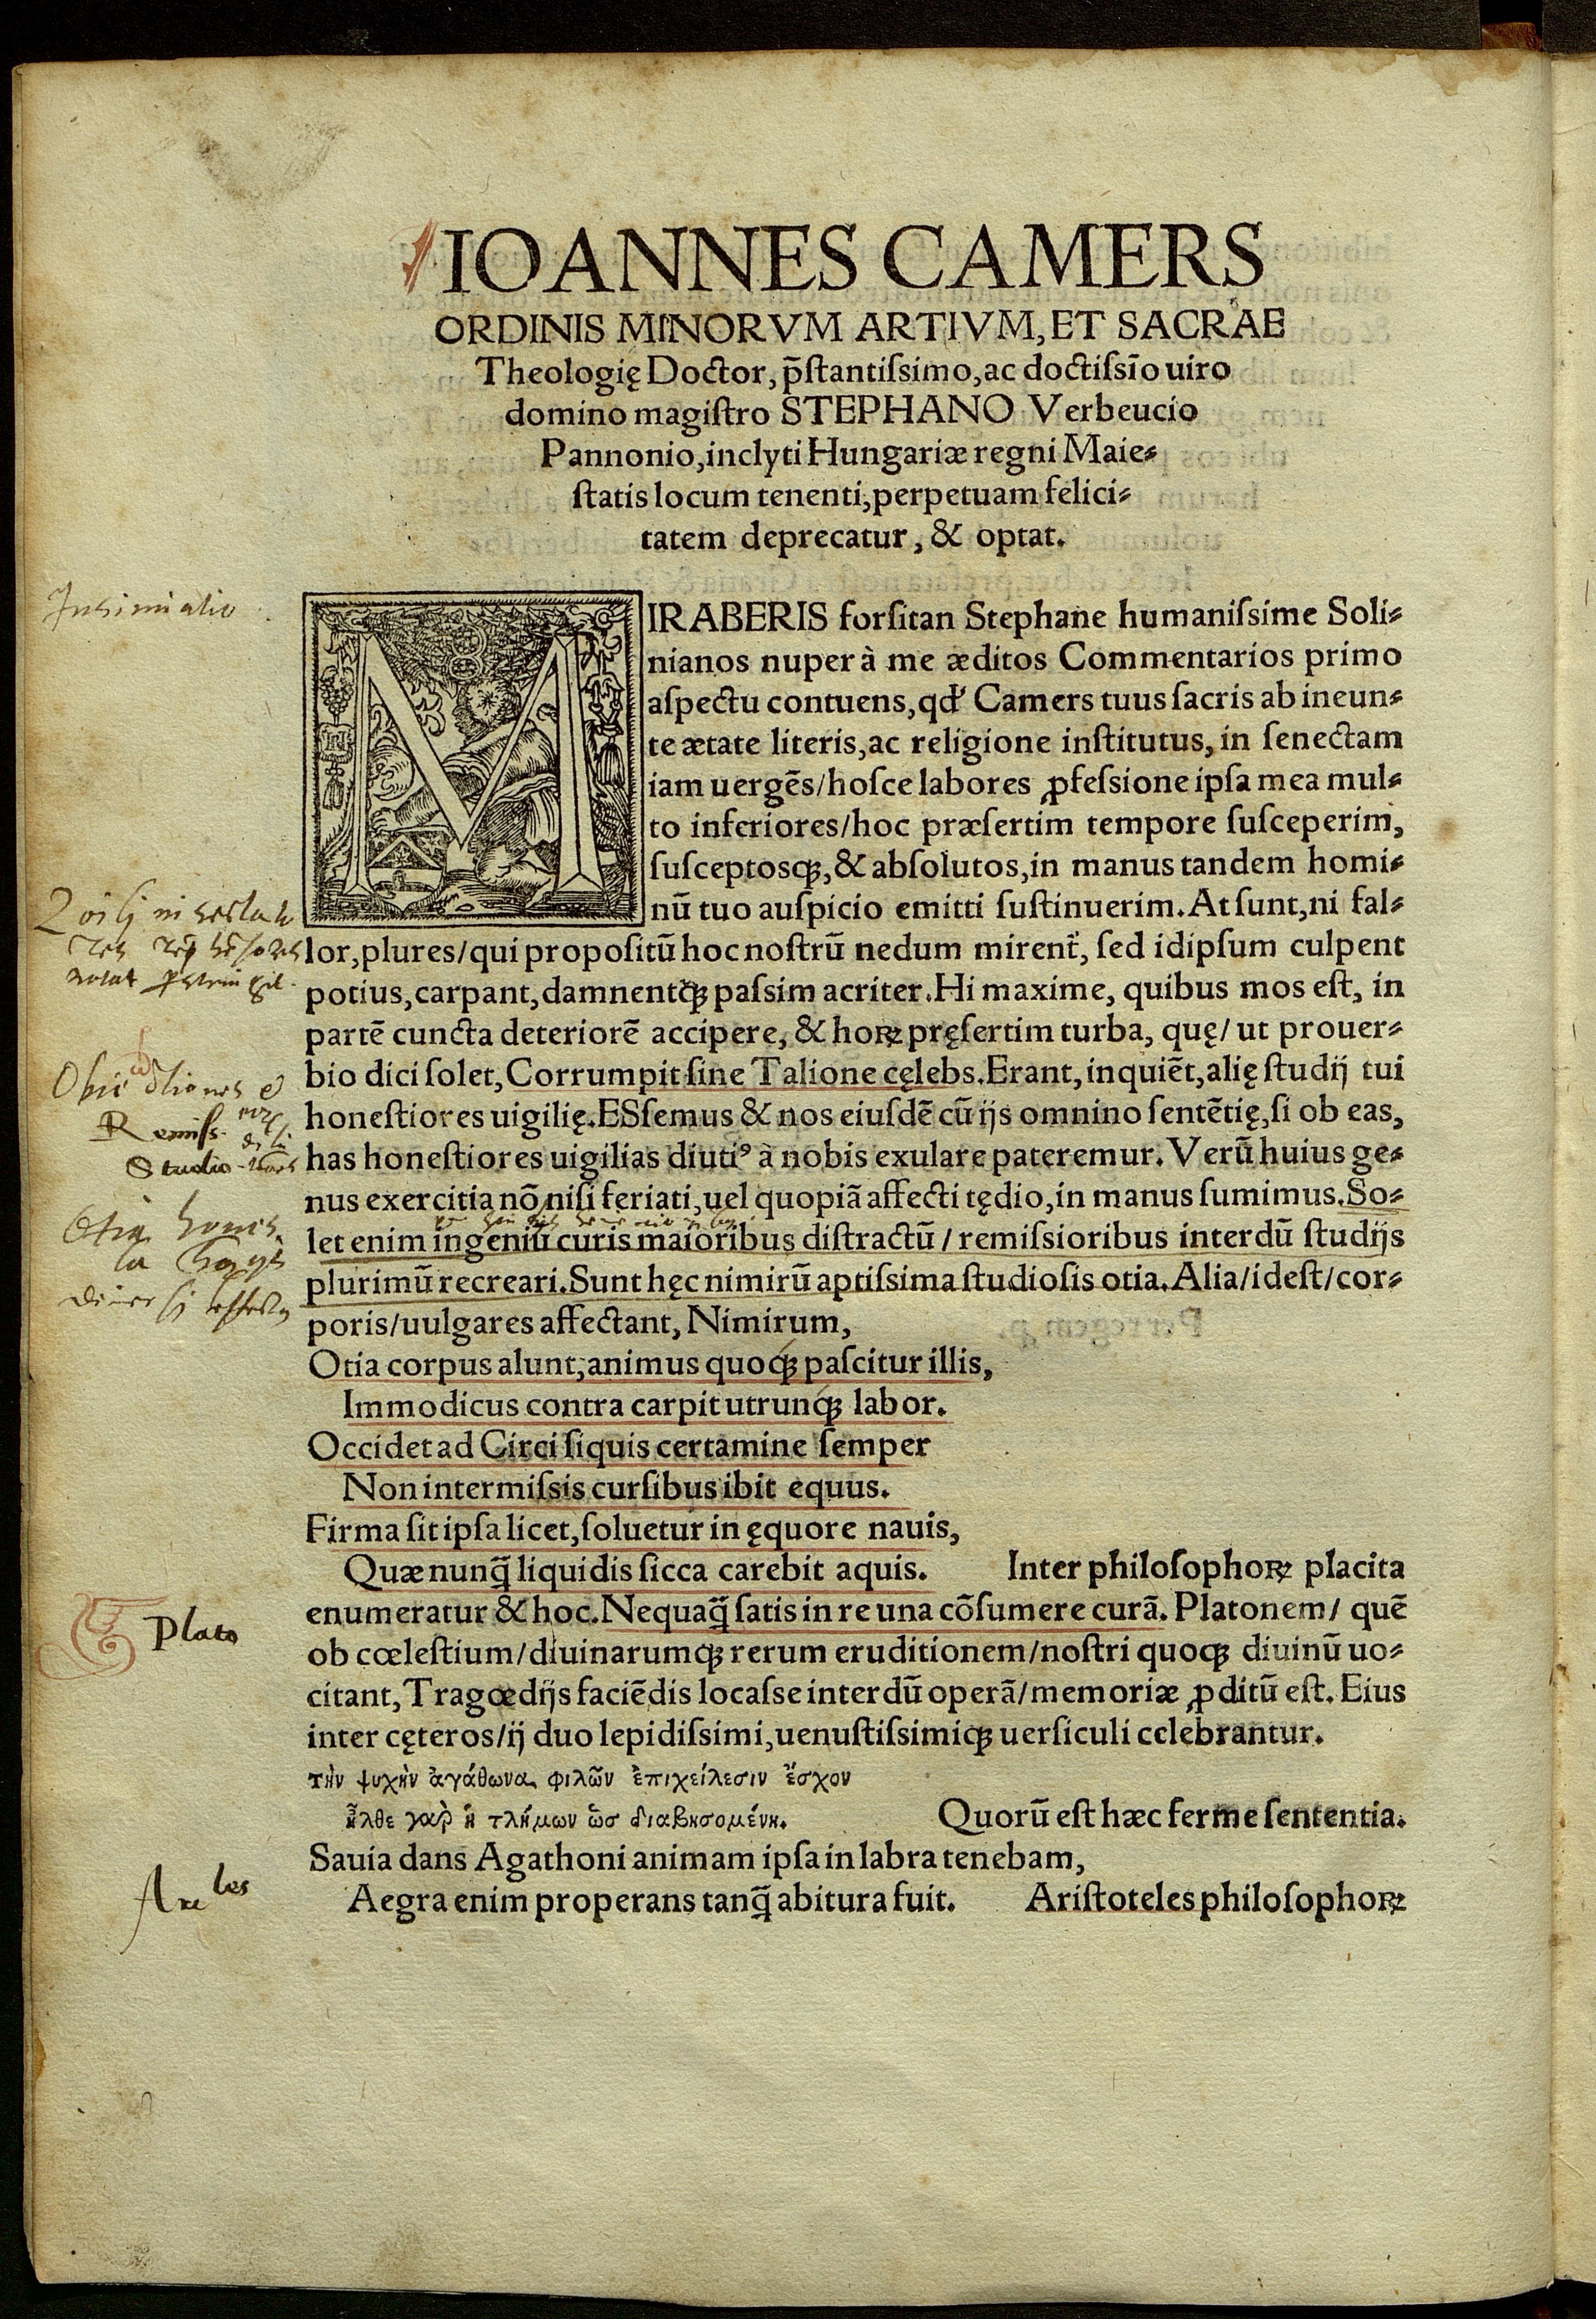 IOANNES CAMERS
ORDINIS MINORVM ARTIVM, ET SACRAE
Theologię Doctor, p̄ſtantiſsimo, ac doctiſsīo uiro
domino magiſtro STEPHANO Verbeucio
Pannonio, inclyti Hungariæ regni Maie⸗
ſtatis locum tenenti, perpetuam felici⸗
tatem deprecatur, & optat.
MIRABERIS forſitan Stephane humaniſsime Soli⸗
nianos nuper à me æditos Commentarios primo
aſpectu contuens, qđ Camers tuus ſacris ab ineun⸗
te ætate literis, ac religione inſtitutus, in ſenectam
iam uergēs/hoſce labores ꝓfeſsione ipſa mea mul⸗
to inferiores/hoc præſertim tempore ſuſceperim,
ſuſceptosqꝫ, & abſolutos, in manus tandem homi⸗
nū tuo auſpicio emitti ſuſtinuerim. At ſunt, ni fal⸗
lor, plures/qui propoſitū hoc noſtrū nedum mirent᷑, ſed idipſum culpent
potius, carpant, damnentqꝫ paſsim acriter. Hi maxime, quibus mos eſt, in
partē cuncta deteriorē accipere, & hoꝝ pręſertim turba, quę/ ut prouer⸗
bio dici ſolet, Corrumpit ſine Talione cęlebs. Erant, inquiēt, alię ſtudij tui
honeſtiores uigilię. ESſemus & nos eiuſdē cū ijs omnino ſentētię, ſi ob eas,
has honeſtiores uigilias diutiꝰ à nobis exulare pateremur. Verū huius ge⸗
nus exercitia nō niſi feriati, uel quopiā affecti tędio, in manus ſumimus. So⸗
let enim ingeniū curis maioribus diſtractū / remiſsioribus interdū ſtudijs
plurimū recreari. Sunt hęc nimirū aptiſsima ſtudioſis otia. Alia/ideſt/cor⸗
poris/uulgares affectant, Nimirum,
Otia corpus alunt, animus quoqꝫ paſcitur illis,
Immodicus contra carpit utrunqꝫ labor.
Occidet ad Circi ſiquis certamine ſemper
Non intermiſsis curſibus ibit equus.
Firma ſit ipſa licet, ſoluetur in ęquore nauis,
Quæ nunq̄ liquidis ſicca carebit aquis. Inter philoſophoꝝ placita
enumeratur & hoc. Nequaq̄ ſatis in re una cōſumere curā. Platonem/ quē
Plato
ob cœleſtium/diuinarumqꝫ rerum eruditionem/noſtri quoqꝫ diuinū uo⸗
citant, Tragœdijs faciēdis locaſse interdū operā/memoriæ ꝓditū eſt. Eius
inter cęteros/ij duo lepidiſsimi, uenuſtiſsimiqꝫ uerſiculi celebrantur.
τὴν ψυχὴν ἀγάθωνα φιλῶν ἐπιχείλεσιν ἔσχον
ἦλθε γαρ̀ ἡ τλήμων ὧσ διαβησομένη. Quorū eſt hæc ferme ſententia.
Sauia dans Agathoni animam ipſa in labra tenebam,
Aegra enim properans tanq̄ abitura fuit. Ariſtoteles philoſophoꝝ